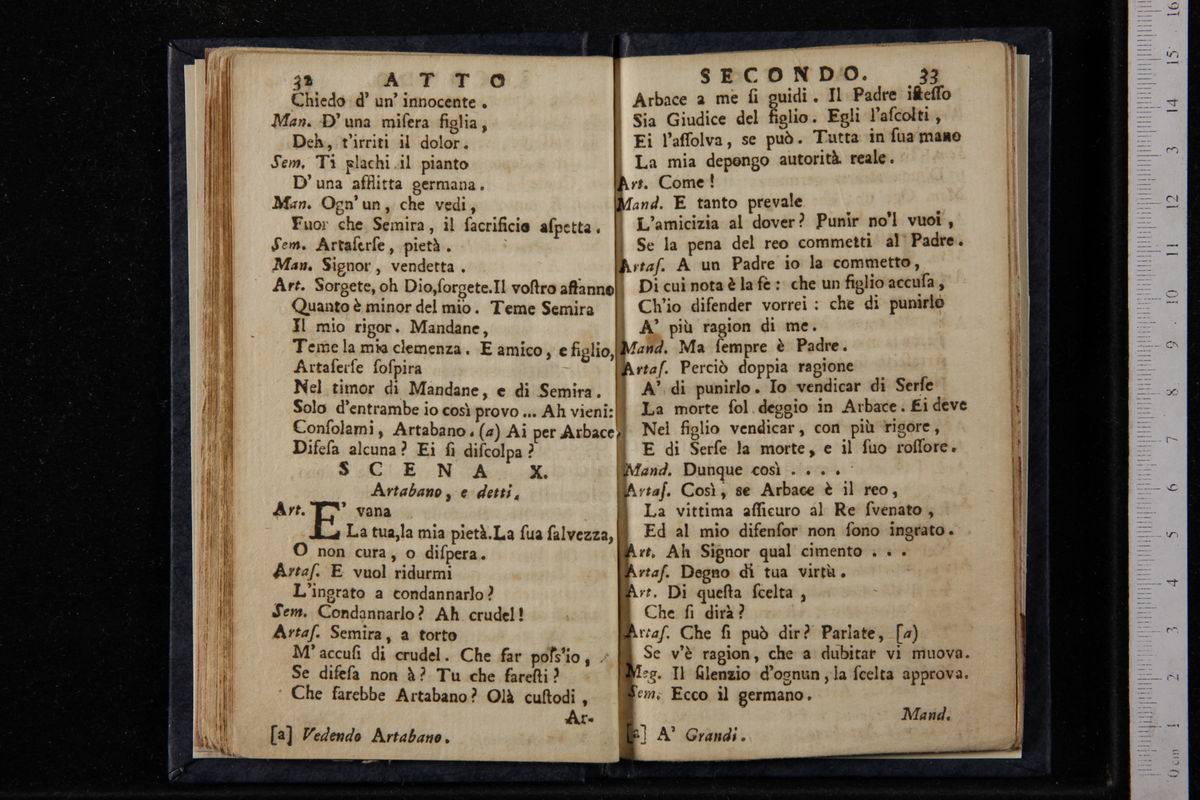 32 ATTO
Chiedo d' un' innocente.
Man. D' una miſera figlia,
Deh, t'irriti il dolor.
Sem. Ti plachi il pianto
D' una afflitta germana.
Man. Ogn' un, che vedi,
Fuor che Semira, il ſacrificio aſpetta.
Sem. Artaſerſe, pietà.
Man. Signor, vendetta.
Art. Sorgete, oh Dio,ſorgete.Il voſtro affanno
Quanto è minor del mio. Teme Semira
Il mio rigor. Mandane,
Teme la mia clemenza. E amico, e figlio,
Artaſerſe ſoſpira
Nel timor di Mandane, e di Semira.
Solo d'entrambe io così provo ... Ah vieni:
Conſolami, Artabano. (a) Ai per Arbace
Difeſa alcuna? Ei ſi diſcolpa?
SCENA X.
Artabano, e detti.
Art. E' vana
La tua,la mia pietà.La ſua ſalvezza,
O non cura, o diſpera.
Artaſ. E vuol ridurmi
L'ingrato a condannarlo?
Sem. Condannarlo? Ah crudel!
Artaſ. Semira, a torto
M' accuſi di crudel. Che far poſs'io,
Se difeſa non à? Tu che fareſti?
Che farebbe Artabano? Olà cuſtodi,
Ar-
[a] Vedendo Artabano.
SECONDO. 33
Arbace a me ſi guidi. Il Padre iſteſſo
Sia Giudice del figlio. Egli l'aſcolti,
Ei l'aſſolva, se può. Tutta in ſua mano
La mia depongo autorità reale.
Art. Come!
Mand. E tanto prevale
L'amicizia al dover? Punir no'l vuoi,
Se la pena del reo commetti al Padre.
Artaſ. A un Padre io la commetto,
Di cui nota è la fè: che un figlio accuſa,
Ch'io difender vorrei: che di punirlo
A' più ragion di me.
Mand. Ma ſempre è Padre.
Artaſ. Perciò doppia ragione
A' di punirlo. Io vendicar di Serſe
La morte ſol deggio in Arbace. Ei deve
Nel figlio vendicar, con più rigore,
E di Serſe la morte, e il ſuo roſſore.
Mand. Dunque così . . . .
Artaſ. Così, se Arbace è il reo,
La vittima aſſicuro al Re ſvenato,
Ed al mio difenſor non ſono ingrato.
Art. Ah Signor qual cimento . . .
Artaſ. Degno di tua virtù.
Art. Di queſta ſcelta,
Che ſi dirà?
Artaſ. Che ſi può dir? Parlate, [a]
Se v'è ragion, che a dubitar vi muova.
Meg. Il ſilenzio d'ognun, la ſcelta approva.
Sem. Ecco il germano.
Mand.
[a] A' Grandi.